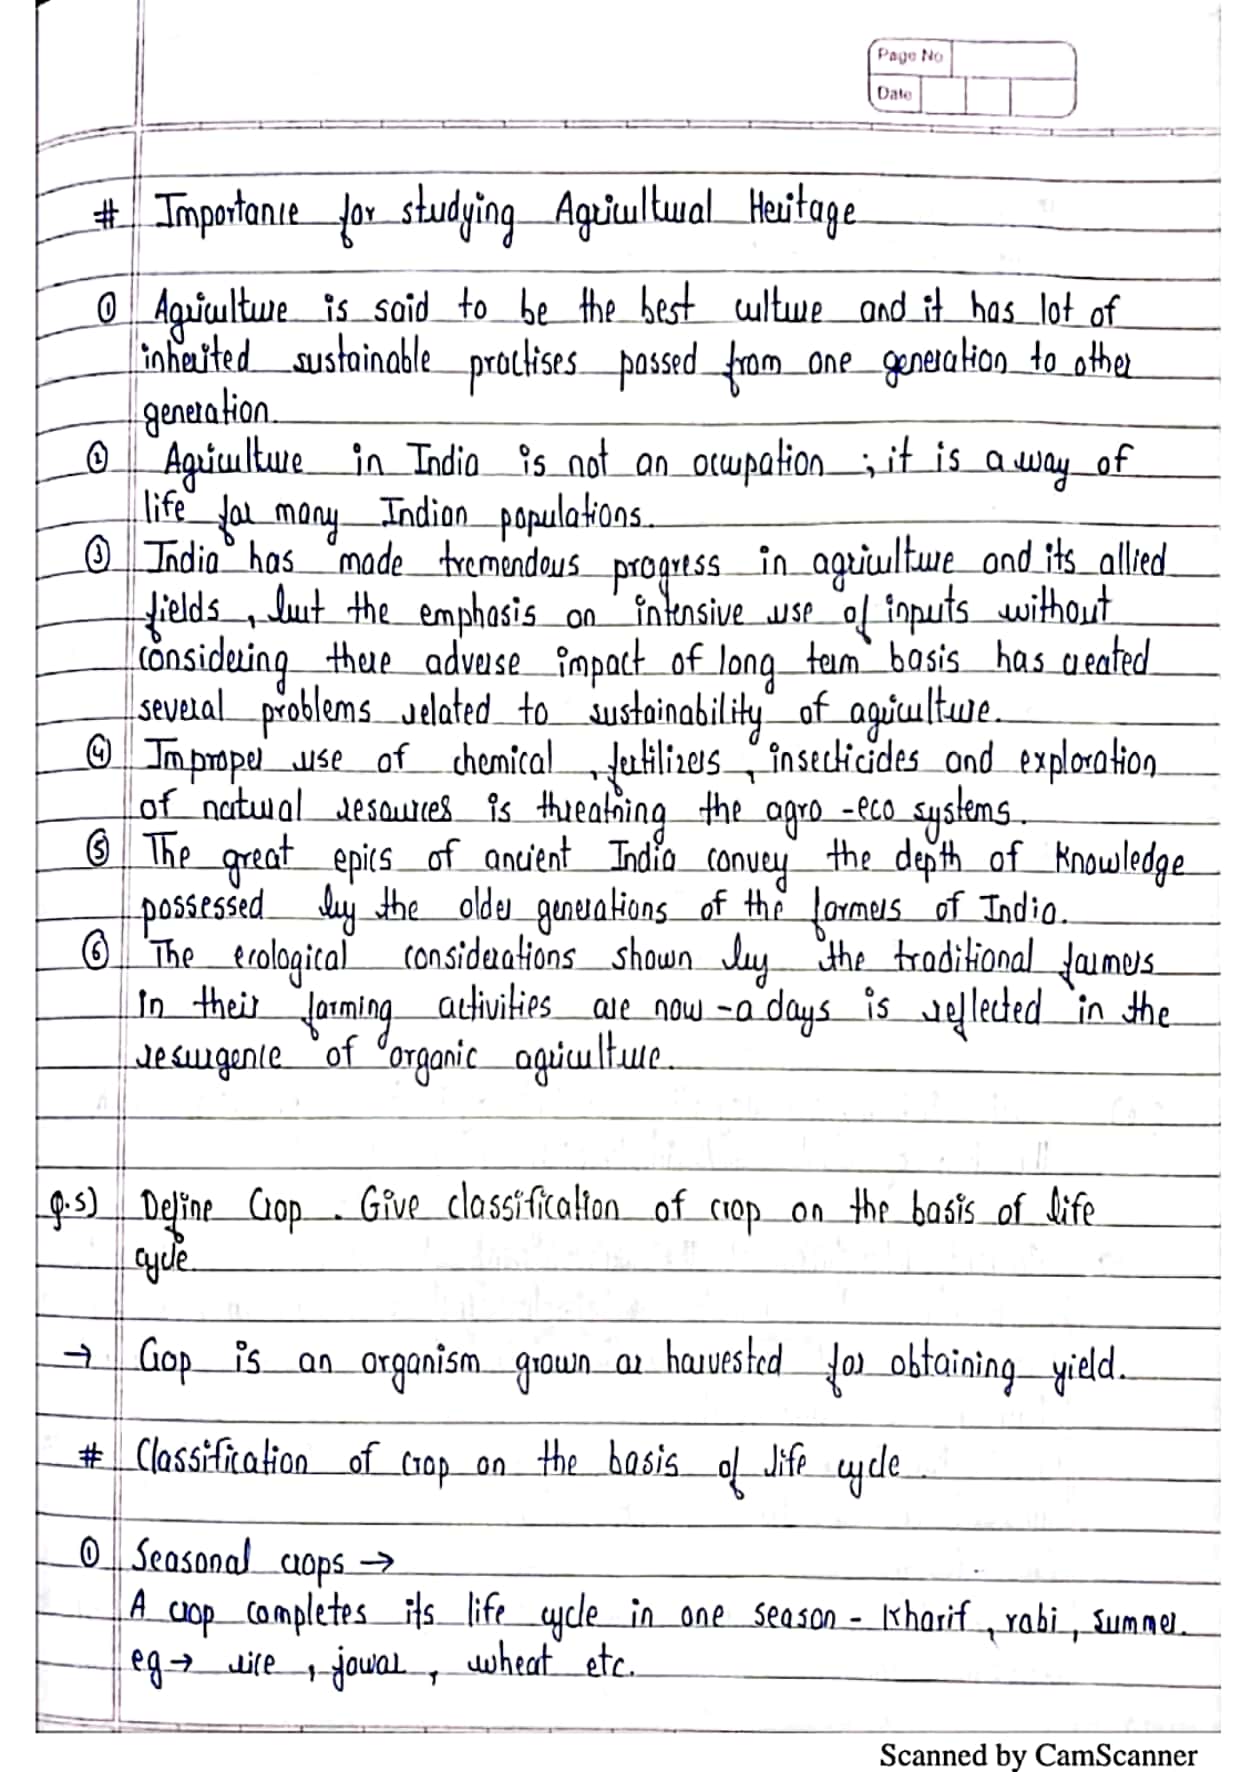 Page No
Date
# Importance for studying Agricultural Heritage
① Agriculture is said to be the best culture and it has lot of
inherited sustainable practises passed from one generation to other
generation.
② Agriculture in India is not an occupation ; it is a way of
life for many Indian populations.
③ India has made tremendous progress in agriculture and its allied
fields, but the emphasis on intensive use of inputs without
considering there adverse impact of long term basis has created
several problems related to sustainability of agriculture.
④ Improper use of chemical, fertilizers, insecticides and exploration
of natural resources is threatning the agro-eco systems.
⑤ The great epics of ancient India convey the depth of knowledge
possessed by the older generations of the farmers of India.
⑥ The ecological considerations shown by the traditional farmers
in their farming activities are now-a days is reflected in the
resurgence of organic agriculture.
Q.5) Define Crop. Give classification of crop on the basis of life
cycle.
→ Crop is an organism grown or harvested for obtaining yield.
# Classification of crop on the basis of life cycle.
① Seasonal crops →
A crop completes its life cycle in one season - Kharif, rabi, summer.
eg → rice, jowar, wheat etc.
Scanned by CamScanner